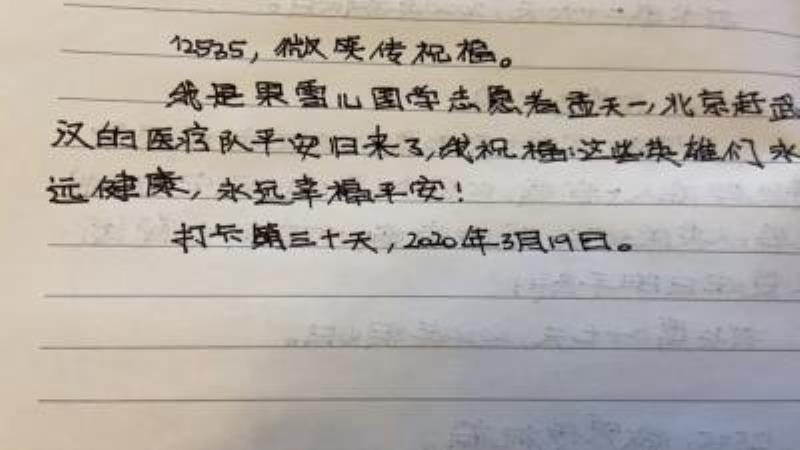 12535，微笑传祝福。
我是果雪儿国学志愿者孟天一,北京赶武
汉的医疗队平安归来了,我祝福:这些英雄们永
远健康，永远幸福平安！
打卡第三十天，2020年3月19日。